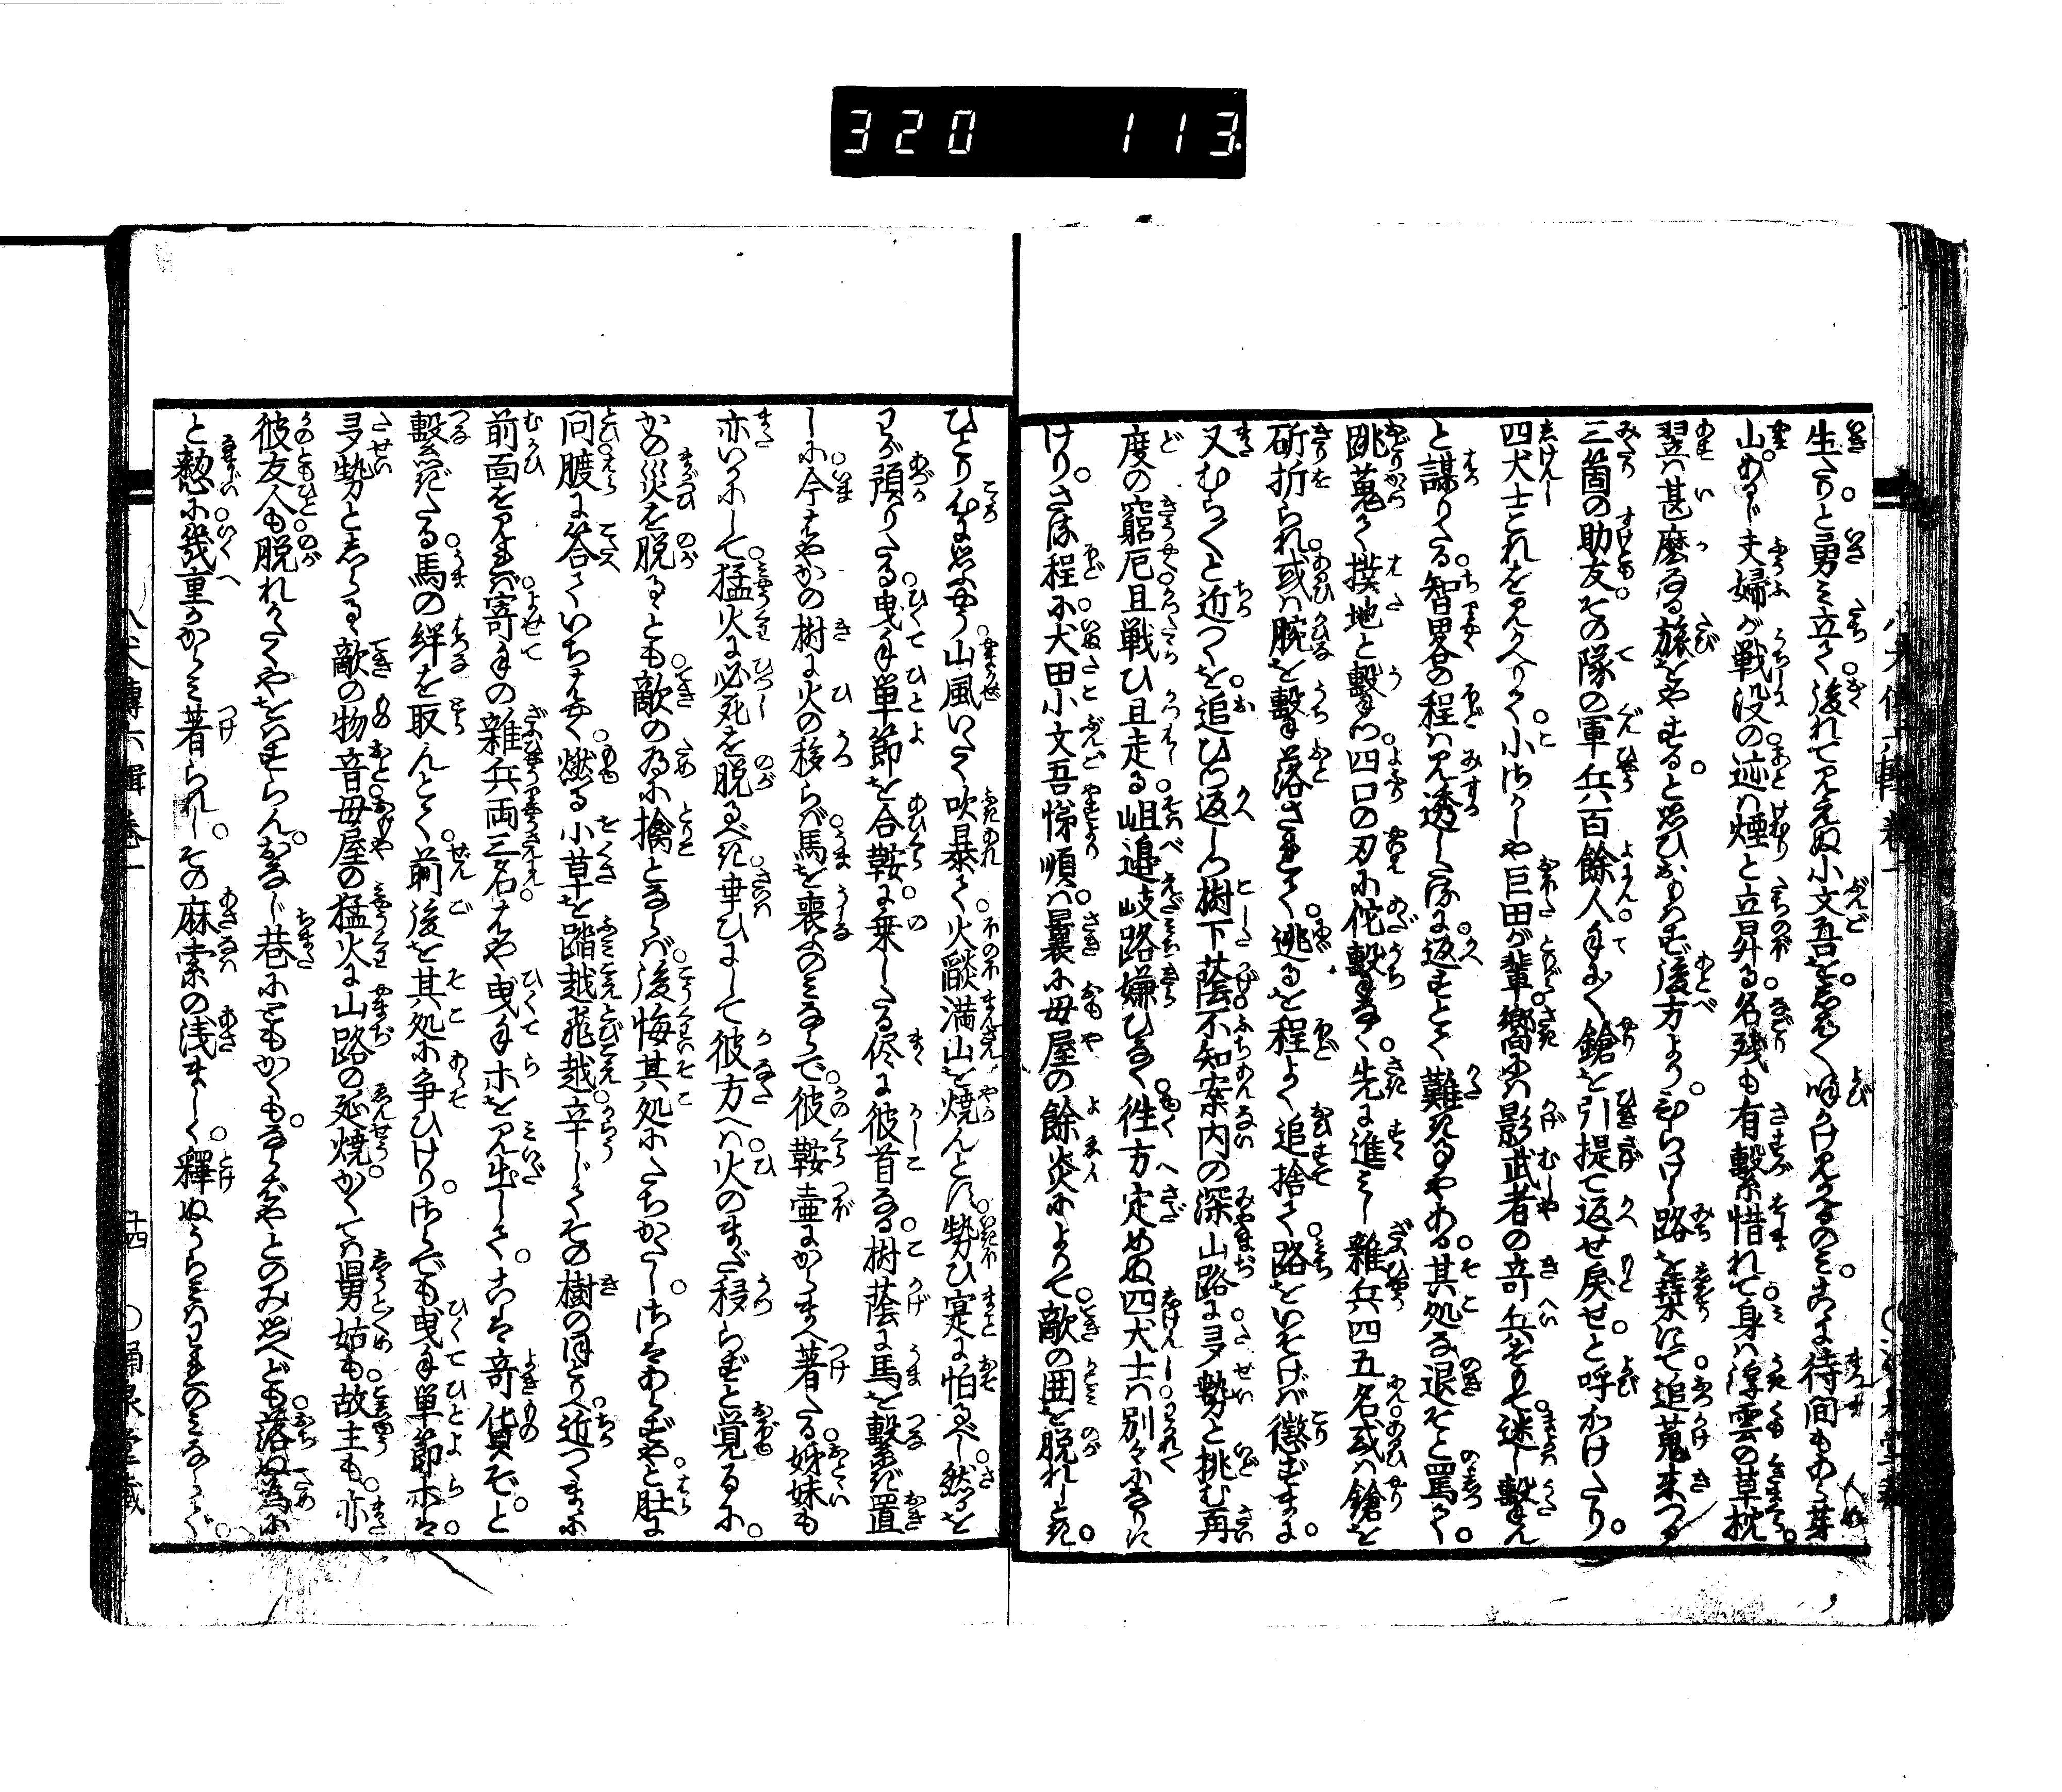 320 113
生たりと勇み立て後れて見えぬ小文吾をしばしば呼かけ見かへるのみこゝに待間もあら芽
山あるじ夫婦が戦没の迹は煙と立昇る名残も有繋惜れて身は浮雲の草枕
翌は甚麼なる旅をやすると思ひかねつゝ後方よりむらけし路を栞にて追蒐来つる
三箇の助友その隊の軍兵百餘人手に手に鎗を引提て返せ戻せと呼かけたり
四犬士これを見かへりて小ざかしや巨田が輩嚮には影武者の奇兵をもて迷し撃ん
と謀りたる智畧の程は見透したるに返すとて難きことやある其処な退そと罵て
跳蒐て撲地と撃つ四口の刃に佗撃もなく先に進みし雑兵四五名或は鎗を
斫折られ或は腕を撃落されて逃るを程よく追捨て路をいそげば懲ずまに
又むらむらと近つくを追ひつ返しつ樹下蔭不知案内の深山路に多勢と挑む再
度の窮厄且戦ひ且走る岨邉岐路嫌ひなく徃方定めぬ四犬士は別々になりに
けりさる程に犬田小文吾悌順は曩に母屋の餘炎によりて敵の囲を脱れしとき
ひとり心に思ふやう山風いたく吹暴て火燄満山を焼んとす勢ひ寔に怕るべし然るを
わが預りたる曳手単節を合鞍に乗したる侭に彼首なる樹蔭に馬を繋ぎ置
しに今もやかの樹に火の移らば馬を喪ふのみならで彼鞍壷にからまへ著たる姉妹も
亦いかにして猛火に必死を脱るべき幸ひにして彼方へは火のまだ移らずと覚るに
かの災を脱るゝとも敵の為に擒とならば後悔其処にたちかたしさはあらずやと肚に
問膓に答ていちはやく燃る小草を踏越飛越辛じてその樹のほとりへ近つくまに
前面を見れば寄手の雑兵両三名はや曳手ホを見出してこは奇貨ぞと
繋ぎたる馬の絆を取んとて前後を其処に争ひけりさらでも曳手単節ホは
多勢としらるゝ敵の物音母屋の猛火に山路の延焼かくては舅姑も故主も亦
彼友人も脱れがたくやをはすらんおなじ巷にともかくもならばやとのみ思へども落ぬ為に
と憖に幾重かからみ著られしその麻索の浅ましく釋ぬうらみはわれのみならで
八犬傳六輯巻一 十四 ○涌泉堂藏